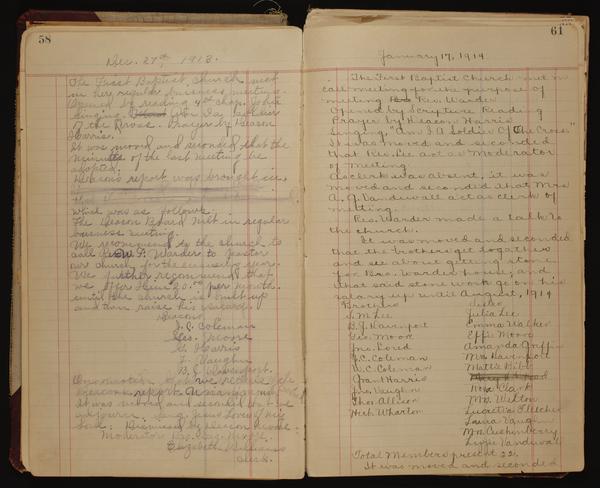 58
Dec. 27th, 1913.
The First Baptist Church met
in her regular business meeting.
Opened by reading 4th chap. John
singing. Am I a Soldier
of the Cross. Prayer by Deacon
Harris.
It was moved and seconded that the
minutes of the last meeting be
adopted.
Deacons report was brought in,
which was as follows.
The Deacon Board met in regular
business meeting.
We recommend to the church to
call Rev W. P. Warder to pastor
our church for the ensuing year.
We further recommend that
we offer him 20.00 per month
until the church is built up
and then raise his salary.
Deacons
J. C. Coleman
Geo. Moore
G. Harris
J. Vaughn
B. J. Davenport.
On motion that we receive the
Deacons report.
It was moved and seconded to
adjourn. Sing Jesus Lover of my
Soul. Dismissed by Deacon Moore.
Moderator Bro. Geo. Moore
Elizabeth Williams
Clerk.
61
January 17, 1914
The First Baptist Church met in
call meeting for the purpose of
meeting Rev. Warder
Opened by Scripture Reading
Prayer by Deacon Harris
Singing, "Am I A Soldier Of the Cross"
It was moved and seconded
that Rev. Lee act as Moderator
of meeting
As clerk was absent, it was
moved and seconded that Mrs
A. J. Vanduvall act as clerk of
meeting.
Rev. Warder made a talk to
the church.
It was moved and seconded
that the brothers get together
and see about getting stone
for Bro. Warder house, and
that said stone work go on his
salary up until August, 1914
Brothers Sisters
S. M. Lee Julia Lee
B. J. Davenport Emma Walker
Geo. Moore Effie Moore
Jno. Lored Amanda Griffin
J. C. Coleman Mrs Davenport
W. C. Coleman Mattie
Grant Harris
Jno. Vaughn Rosa Clark
Thos. Allison Mrs. Welton
Herb. Wharton Lucretia Fletcher
Laura Vaughn
Mrs. Cushenberry
Lizzie Vanduvall
Total Members present 22.
It was moved and seconded